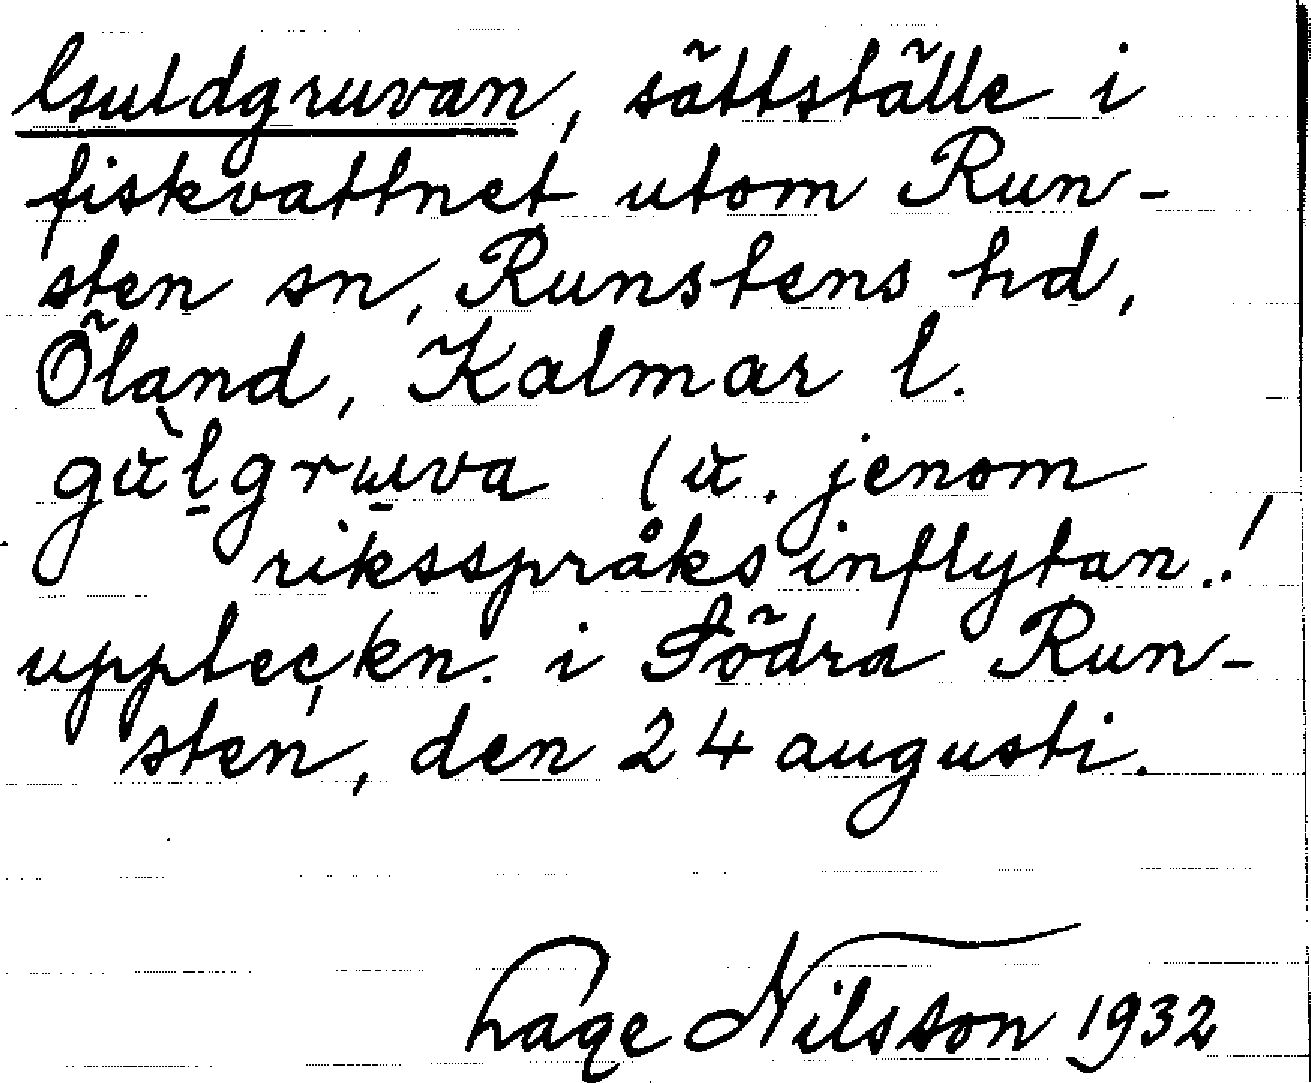 Guldgruvan, sättställe i
fiskvattnet utom Run-
sten sn, Runstens hd,
Öland, Kalmar l.
gùl̠gru̠va (ù. jenom
riksspråksinflytan..!
uppteckn. i Södra Run-
sten, den 24 augusti.
Hage Nilsson 1932